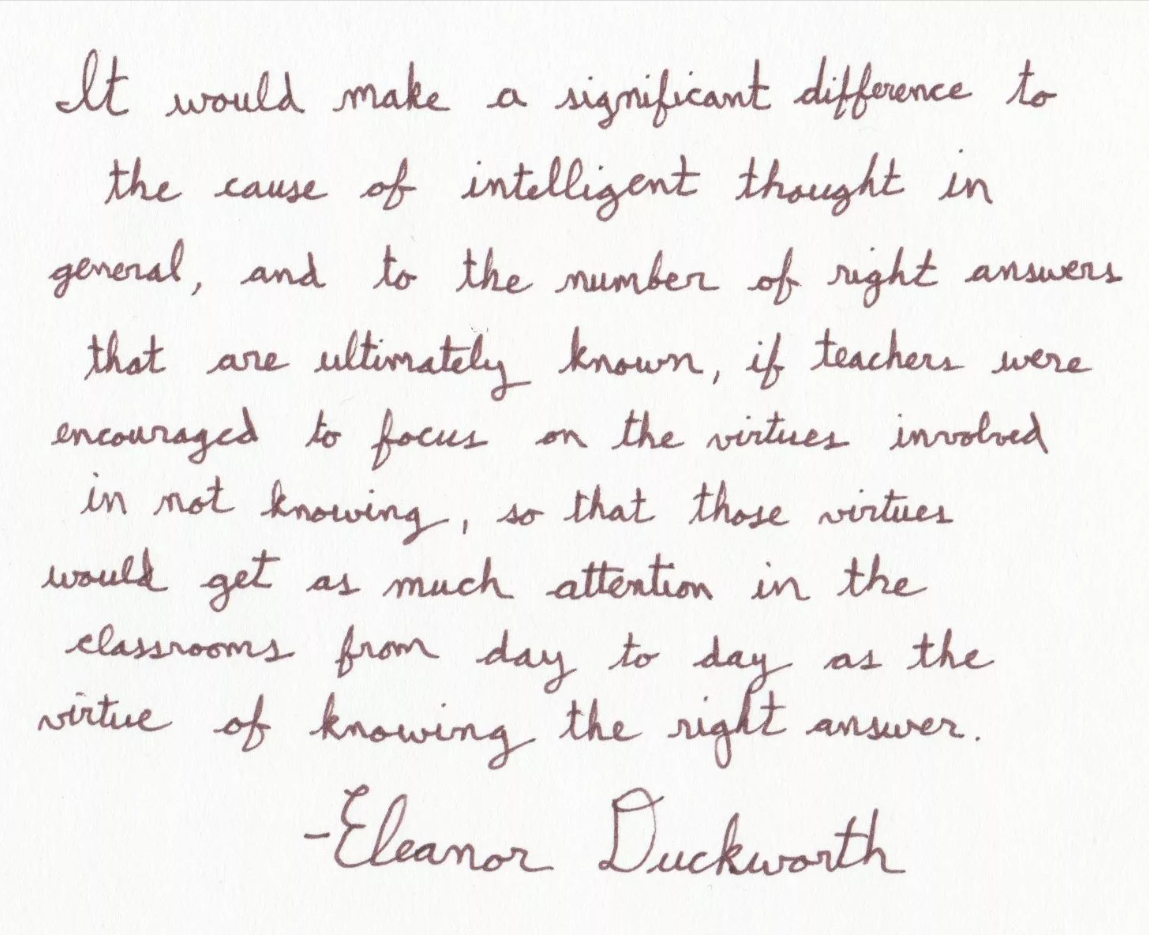 It would make a significant difference to
the cause of intelligent thought in
general, and to the number of right answers
that are ultimately known, if teachers were
encouraged to focus on the virtues involved
in not knowing, so that those virtues
would get as much attention in the
classrooms from day to day as the
virtue of knowing the right answer.
-Eleanor Duckworth